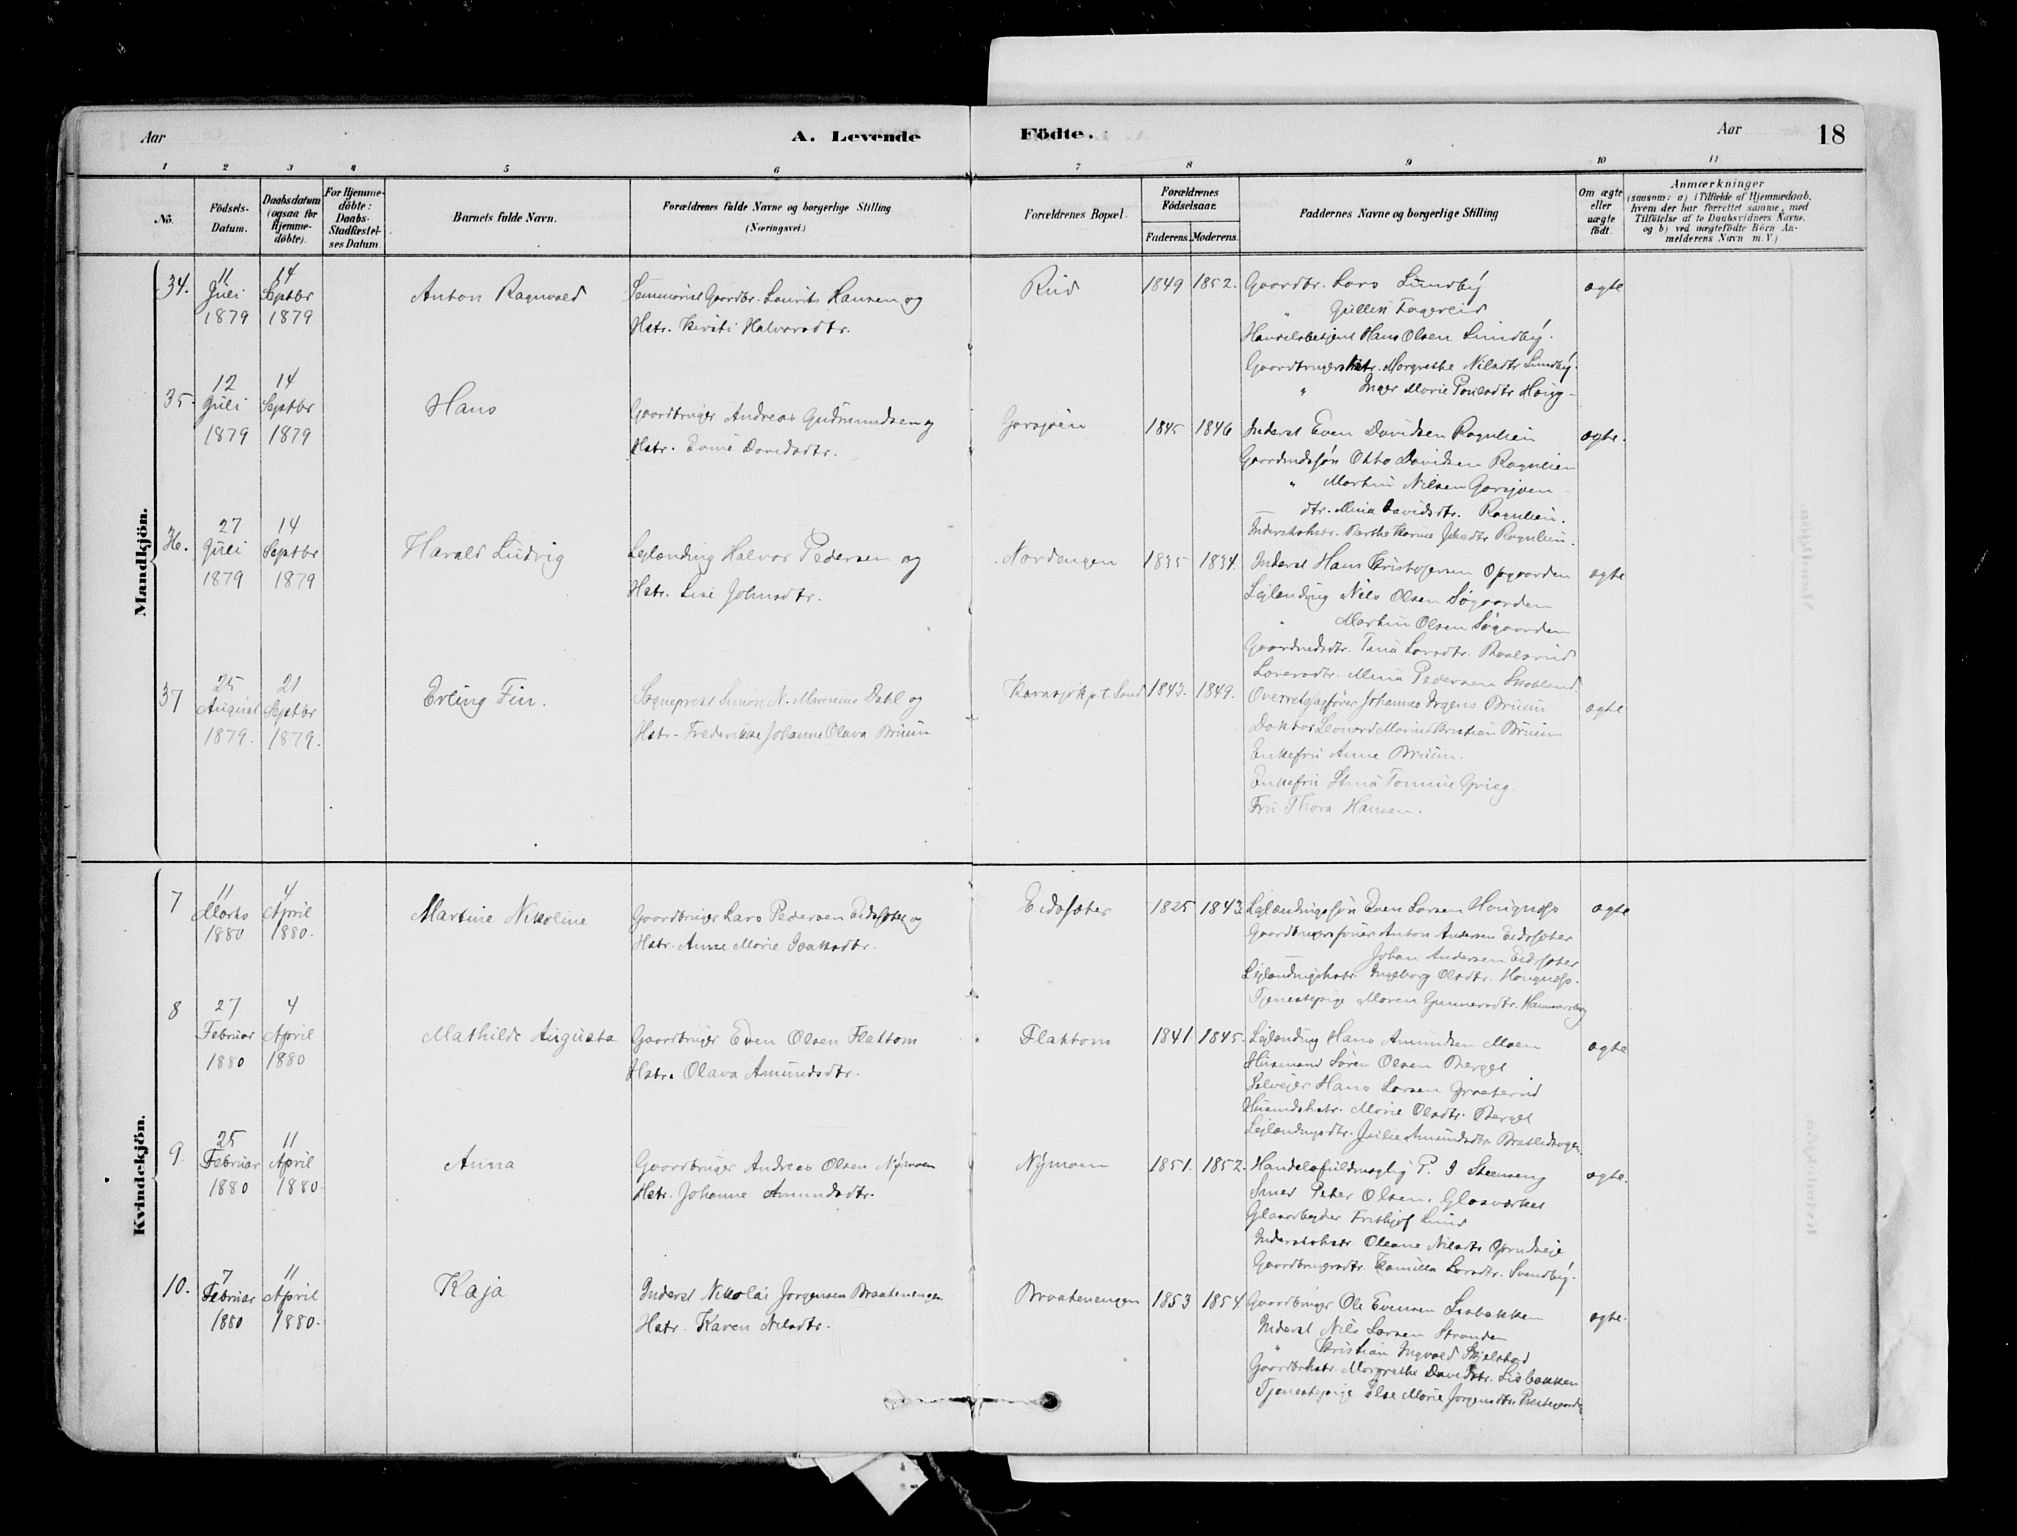 Aar
A. Levende
Födte.
Aar
18
1 2 3 4 5 6 7 8 9 10 11
No.
Födsels-
Datum.
Daabsdatum
(ogsaa for
Hjemme-
döbte).
For Hjemme-
döbte:
Daabs-
Stadfæstel-
ses Datum
Barnets fulde Navn.
Forældrenes fulde Navne og borgerlige Stilling
(Næringsvei.)
Forældrenes Bopæl.
Forældrenes
Födselsaar.
Faderens.
Moderens.
Faddernes Navne og borgerlige Stilling
Om ægte
eller
uægte
födt.
Anmærkninger
(saasom: a) i Tilfælde af Hjemmedaab,
hvem der har forrettet samme, med
Tilföielse af to Daabsvidners Navne.
og b) ved uægtefödte Börn An-
melderens Navn m. V.)
Mandkjön.
34.
11
Juli
1879
14
Septbr
1879
Anton Ragnvald
Gaardbr. Laurits Hansen og
Hstr. Kirsti Halvorsdtr.
Rud
1849
1852.
Gaardbr. Lars Lundby
" Fagereid
Handelsbetjent Hans Olsen Lundby.
Gaardbrugerhstr. Margrethe Nilsdtr Lundby.
" Inger Marie Poulsdtr Houg
ægte
35.
12
Juli
1879
14
Septbr
1879
Hans
Gaardbruger Andreas Gudmundsen og
Hstr. Davidsdtr.
Garsjøen
1845
1846
Inderst Even Davidsen Rognlien
Gaardmdssøn Otto Davidsen Rognlien
" Martin Nilsen Garsjøen
— dtr. Mina Davidsdtr. Rognlien.
Inderstehstr. Berthe Karine Rognlien.
ægte.
36.
27
Juli
1879
14
Septbr
1879
Harald Ludvig
Lejlænding Halvor Pedersen og
Hstr. Lise Johnsdtr.
Nordengen
1835
1834.
Inderst Hans Kristofersen Opgaarden
Lejlænding Nils Olsen Søgaarden
" Martin Olsen Søgaarden
Gaardmdsdtr. Tina Larsdtr.
Mina Pedersen
ægte
37
25
August
1879.
21
Septbr
1879.
Erling Fin.
Sognepræst Simon N. Marenius Dahl og
Hstr. Frederikke Johanne Olava Bruun
1843.
1849.
Overretssagfører Johannes Irgens Bruun
Doktor Leonard Marius Kristian Bruun
Enkefru Anne Bruun.
Enkefru Stina Tomine Grieg.
Fru Thora Hansen.
ægte
Kvindekjön.
7
11
Marts
1880
4
April
1880.
Martine Nikoline
Gaardbruger Lars Pedersen Eidsfæter og
Hstr. Anne Marie Isaksdtr.
Eidsæter
1825
1843
Lejlændingssøn Even Larsen Hougnæss
Anton Andersen Eidsæter
Johan Andersen Eidsæter
Lejlændingshstr. Ingeborg Olsdtr. Hougnæss.
Tjenestepige Maren Gunnersdtr.
ægte
8
27
Februar
1880
4
April
1880
Mathilde Augusta
Gaardbruger Even Olsen Flattom
Hstr. Olava Amundsdtr.
Flattom
1841
1845.
Lejlænding Hans Amundsen Moen
Husmand Søren Olsen Berget
Selvejer Hans Larsen
Husmdshstr. Marie Olsdtr. Berget
Lejlændingsdtr. Julie Amundsdtr
ægte
9.
25
Februar
1880
11
April
1880.
Anna
Gaardbruger Andreas Olsen Nÿmoen
Hstr. Johanne Amundsdtr.
Nÿmoen
1851.
1852.
Handelsfuldmægtig P. I Steenseng
Smed Peter Olsen, Glasværket
Glasarbejder Frithjof Lund
Inderstehstr Oleane Nilsdtr
Gaardbrugersdtr Kamilla Larsdtr. Svendby.
ægte.
10.
7
Februar
1880
11
April
1880.
Kaja
Inderst Nikolai Jørgensen Braatenengen
Hstr. Karen Nilsdtr.
Braatenengen
1853
1854
Gaardbruger Ole Evensen Lisbakken
Inderst Nils Larsen Stranden
" Kristian Ingvald Skjelstad
Gaardbrhstr. Margrethe Davidsdtr. Lisbakken
Tjenestepige Else Marie Jørgensdtr Prestegaarden
ægte.